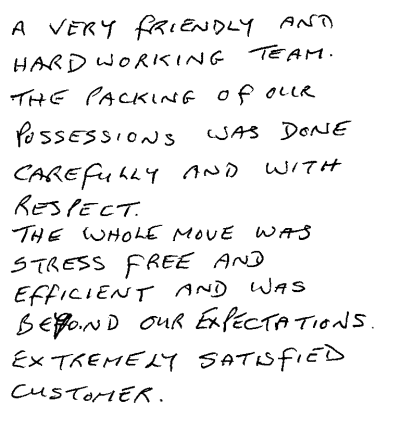 A VERY FRIENDLY AND
HARD WORKING TEAM.
THE PACKING OF OUR
POSSESSIONS WAS DONE
CAREFULLY AND WITH
RESPECT.
THE WHOLE MOVE WAS
STRESS FREE AND
EFFICIENT AND WAS
BEYOND OUR EXPECTATIONS.
EXTREMELY SATISFIED
CUSTOMER.